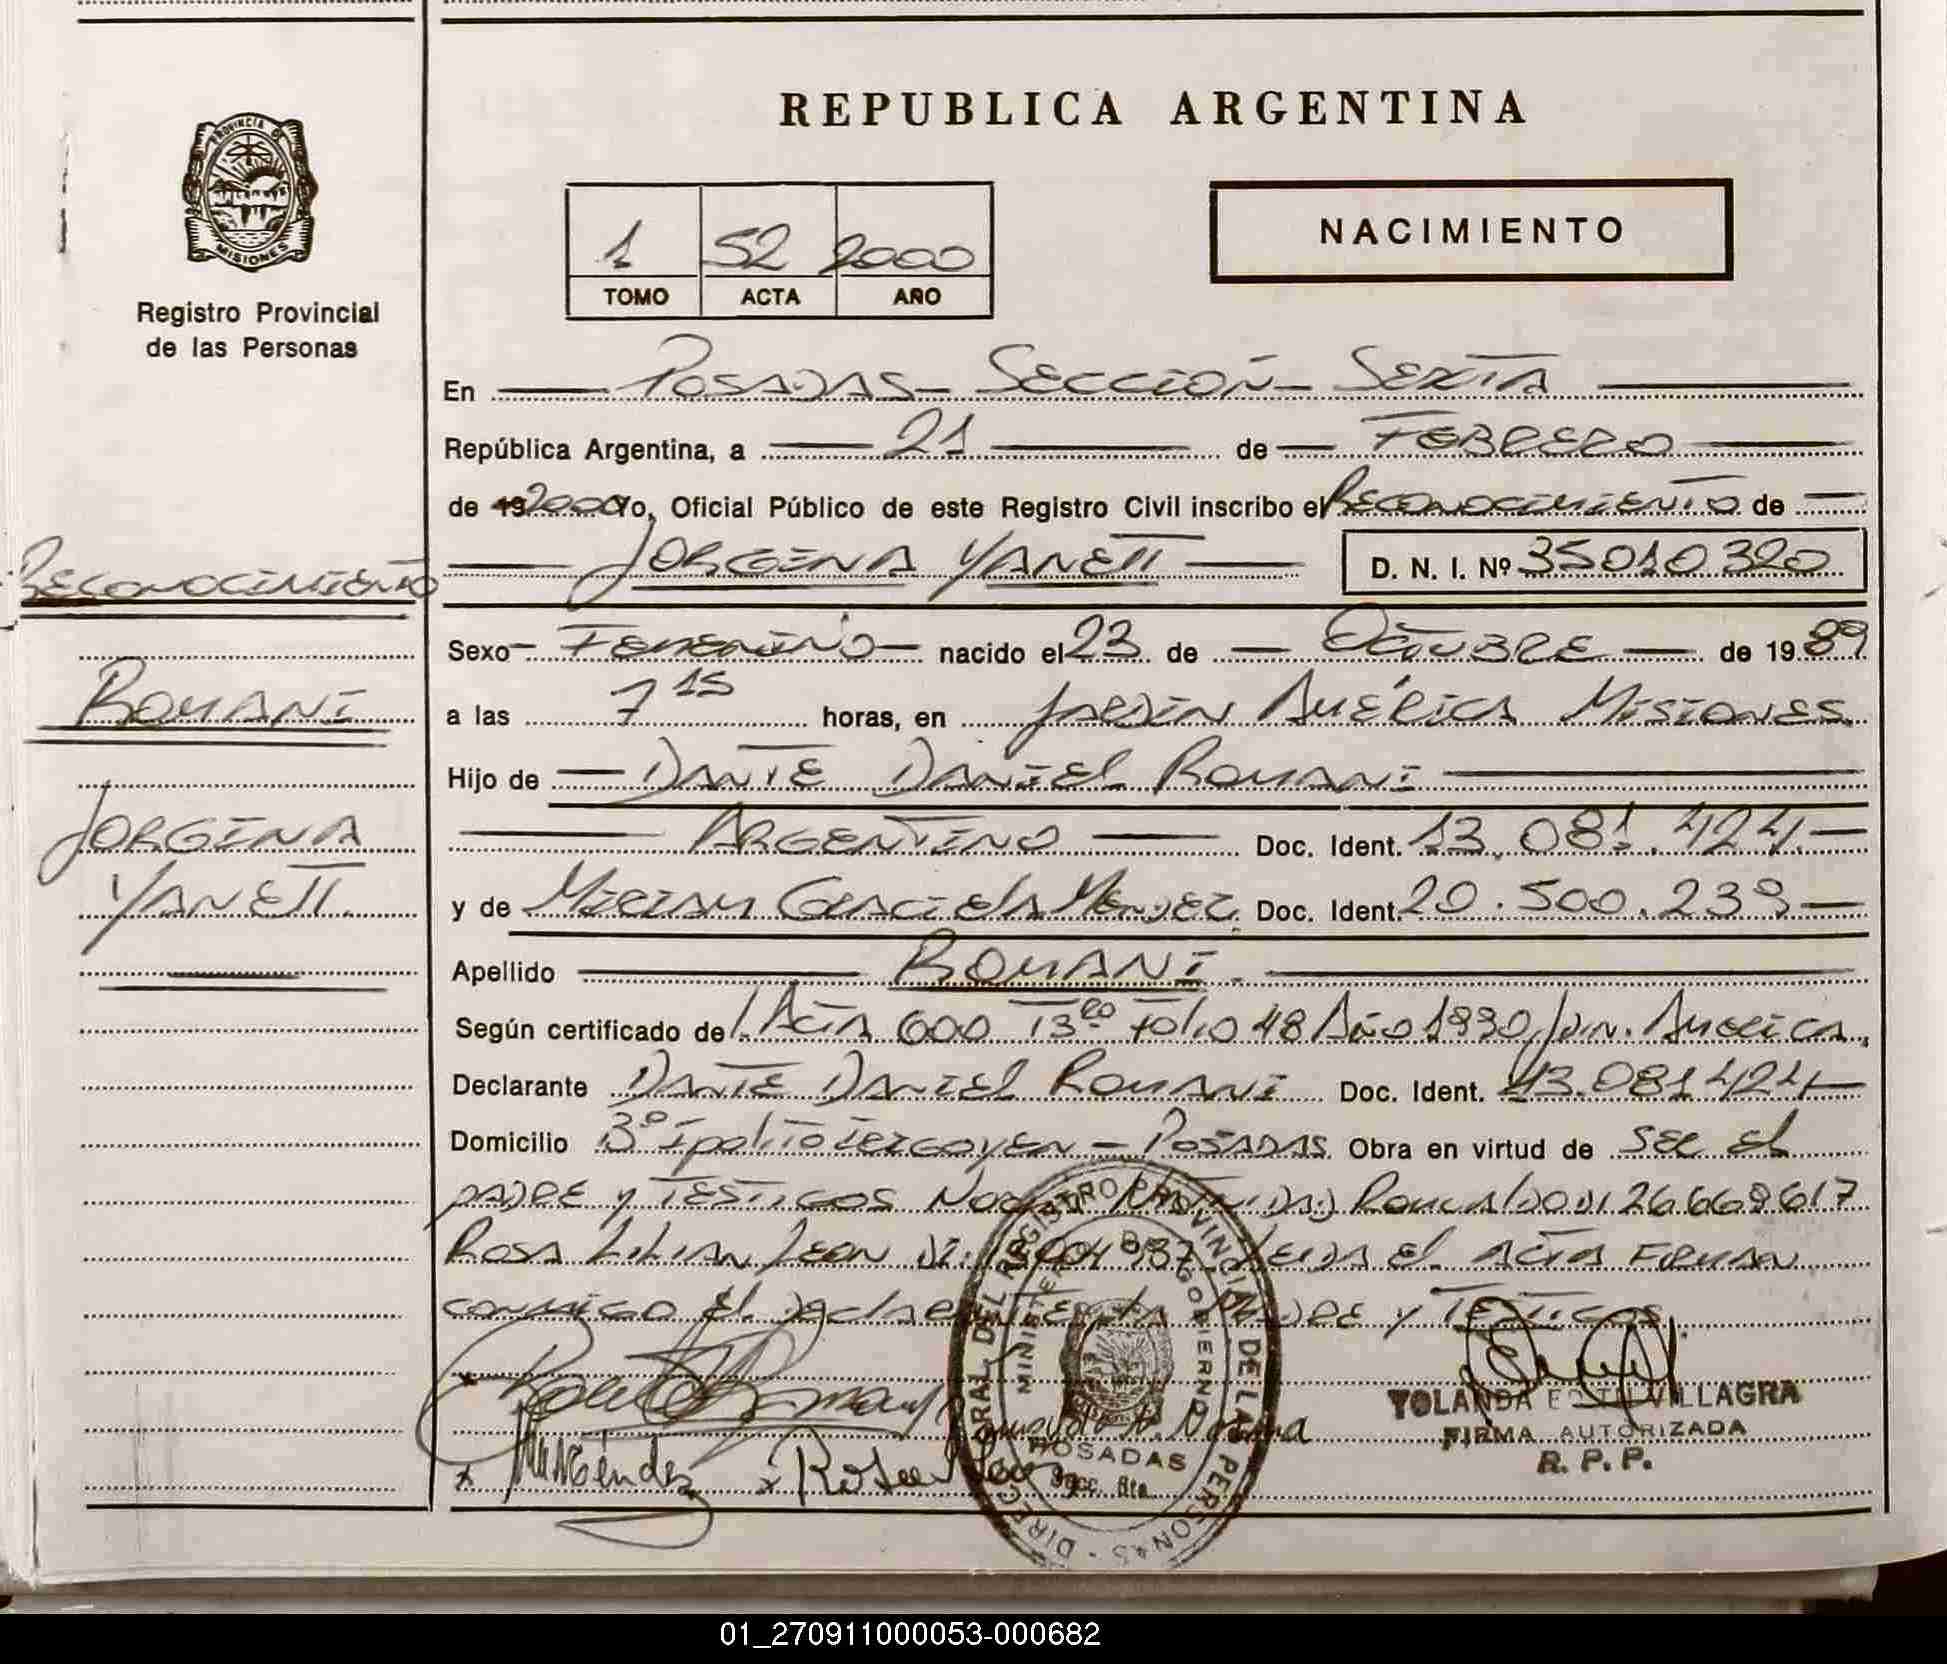 REPUBLICA ARGENTINA
PROVINCIA DE
MISIONES
Registro Provincial
de las Personas
1 52 2000
TOMO ACTA AÑO
NACIMIENTO
En POSADAS - SECCION - SEXTA
República Argentina, a 21 de FEBRERO
de 19 2000 Yo, Oficial Público de este Registro Civil inscribo el RECONOCIMIENTO de
JORGINA YANETT D. N. I. Nº 35010320
RECONOCIMIENTO
ROMANI
JORGINA
YANETT
Sexo FEMENINO nacido el 23 de OCTUBRE de 1989
a las 7 15 horas, en JARDIN AMÉRICA MISIONES
Hijo de DANTE DANIEL ROMANI
ARGENTINO Doc. Ident. 13.081.424
y de MIRIAM GRACIELA MENDEZ Doc. Ident. 20.500.239
Apellido ROMANI
Según certificado de ACTA 600 T3ro Folio 48 AÑO 1990 JDIN. AMERICA
Declarante DANTE DANIEL ROMANI Doc. Ident. 13.081424
Domicilio Bº Ipolito IRIGOYEN - POSADAS Obra en virtud de SER El
PADRE Y TESTIGOS
ROSA LILIAN LEON LEIDA EL ACTA FIRMAN
CONMIGO El DECLARANTE LA MADRE Y TESTIGOS
DIRECCION GRAL. DEL REGISTRO PROVINCIAL DE LAS PERSONAS
MINISTERIO DE GOBIERNO
POSADAS
Secc. 6ta.
M Méndez
YOLANDA EDITH VILLAGRA
FIRMA AUTORIZADA
R. P. P.
01_270911000053-000682